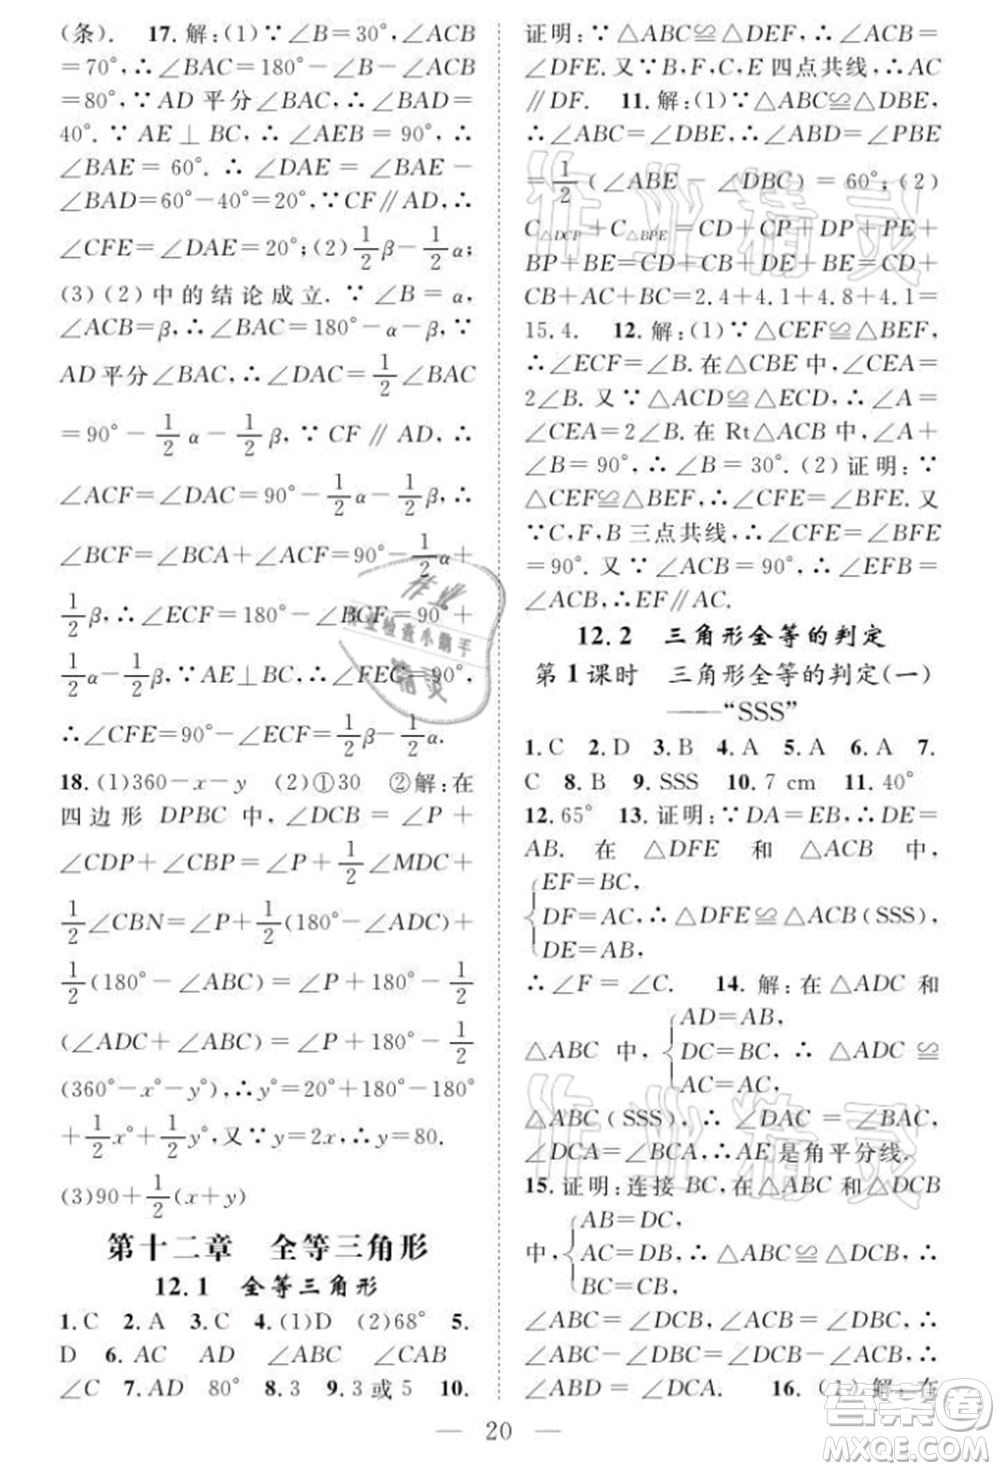 (条).　17.解:(1)∵∠B=30°,∠ACB
=70°,∴∠BAC=180°-∠B-∠ACB
=80°,∵AD平分∠BAC,∴∠BAD=
40°.∵AE⊥BC,∴∠AEB=90°,∴
∠BAE=60°.∴∠DAE=∠BAE-
∠BAD=60°-40°=20°,∵CF∥AD,∴
∠CFE=∠DAE=20°;(2)1/2β-1/2α;
(3)(2)中的结论成立.∵∠B=α,
∠ACB=β,∴∠BAC=180°-α-β,∵
AD平分∠BAC,∴∠DAC=1/2∠BAC
=90°-1/2α-1/2β,∵CF∥AD,∴
∠ACF=∠DAC=90°-1/2α-1/2β,∴
∠BCF=∠BCA+∠ACF=90°-1/2α+
1/2β,∴∠ECF=180°-∠BCF=90°+
1/2α-1/2β.∵AE⊥BC,∴∠FEC=90°,
∴∠CFE=90°-∠ECF=1/2β-1/2α.
18.(1)360-x-y　(2)①30　②解:在
四边形DPBC中,∠DCB+∠P+
∠CDP+∠CBP=∠P+1/2∠MDC+
1/2∠CBN=∠P+1/2(180°-∠ADC)+
1/2(180°-∠ABC)=∠P+180°-1/2
(∠ADC+∠ABC)=∠P+180°-1/2
(360°-x°-y°),∴y°=20°+180°-180°
+1/2x°+1/2y°,又∵y=2x,∴y=80.
(3)90+1/2(x+y)
第十二章　全等三角形
12.1　全等三角形
1.C　2.A　3.C　4.(1)D　(2)68°　5.
D　6.AC　AD　∠ABC　∠CAB
∠C　7.AD　80°　8.3　9.3或5　10.
证明:∵△ABC≌△DEF,∴∠ACB
=∠DFE.又∵B,F,C,E四点共线,∴AC
∥DF.　11.解:(1)∵△ABC≌△DBE,
∴∠ABC=∠DBE,∴∠ABD=∠PBE
=1/2(∠ABE-∠DBC)=60°;(2)
C△DCP+C△BPE=CD+CP+DP+PE+
BP+BE=CD+CB+DE+BE=CD+
CB+AC+BC=2.4+4.1+4.8+4.1=
15.4.　12.解:(1)∵△CEF≌△BEF,
∴∠ECF=∠B.在△CBE中,∠CEA=
2∠B.又∵△ACD≌△ECD,∴∠A=
∠CEA=2∠B.在Rt△ACB中,∠A+
∠B=90°,∴∠B=30°.(2)证明:∵
△CEF≌△BEF,∴∠CFE=∠BFE.又
∵C,F,B三点共线,∴∠CFE=∠BFE
=90°.又∵∠ACB=90°,∴∠EFB=
∠ACB,∴EF∥AC.
12.2　三角形全等的判定
第1课时　三角形全等的判定(一)
——“SSS”
1.C　2.D　3.B　4.A　5.A　6.A　7.
C　8.B　9.SSS　10.7 cm　11.40°
12.65°　13.证明:∵DA=EB,∴DE=
AB.在△DFE和△ACB中,
{EF=BC,
DF=AC,∴△DFE≌△ACB(SSS),
DE=AB,
∴∠F=∠C.　14.解:在△ADC和
△ABC中,{AD=AB,
DC=BC,∴△ADC≌
AC=AC,
△ABC(SSS),∴∠DAC=∠BAC,
∠DCA=∠BCA,∴AE是角平分线.
15.证明:连接BC,在△ABC和△DCB
中,{AB=DC,
AC=DB,∴△ABC≌△DCB,∴
BC=CB,
∠ABC=∠DCB,∠ACB=∠DBC,∴
∠ABC-∠DBC=∠DCB-∠ACB,∴
∠ABD=∠DCA.　16.(1)解:在
20
作业精灵
作业
作业检查小帮手
精灵
作业精灵
答案圈
MXQE.COM